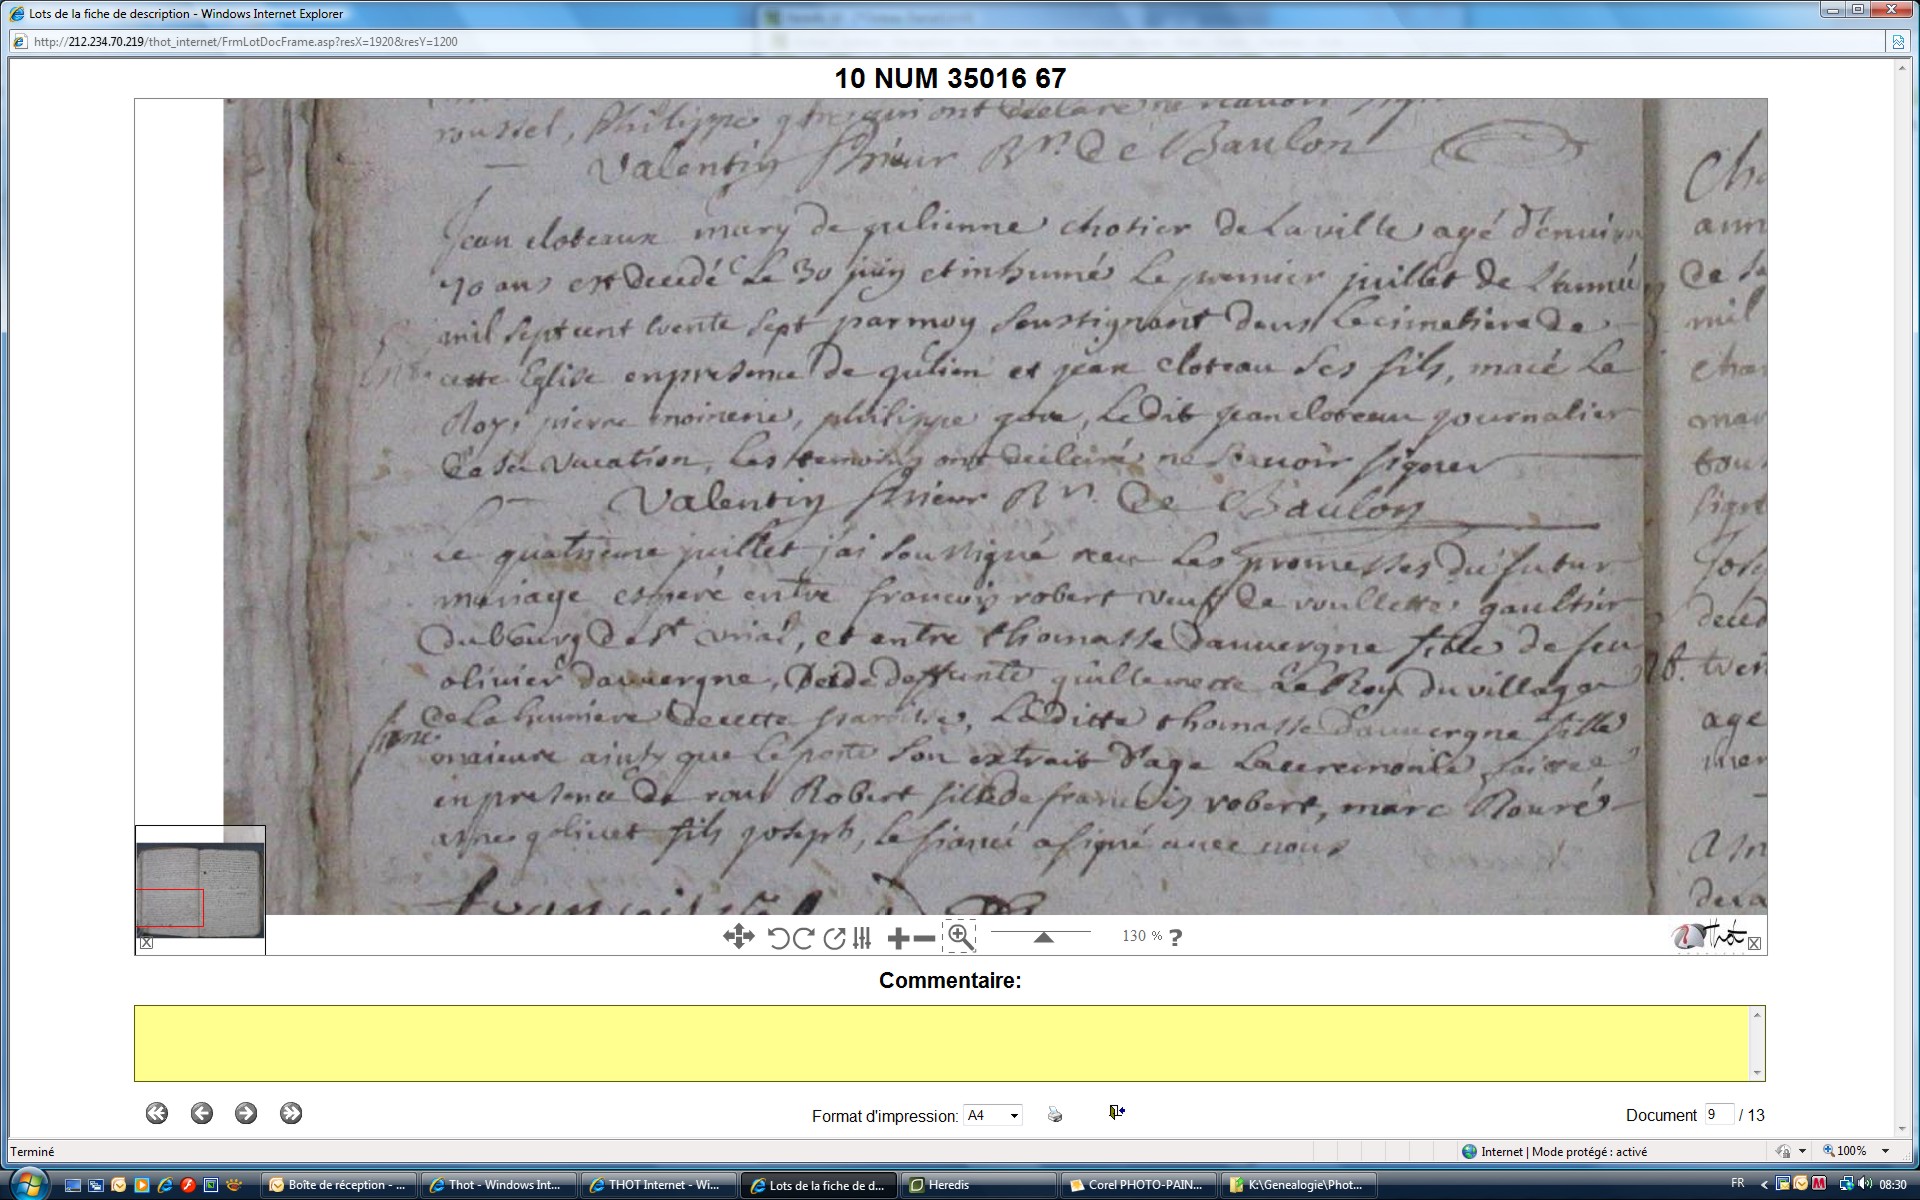 Lots de la fiche de description - Windows Internet Explorer
http://212.234.70.219/thot_internet/FrmLotDocFrame.asp?resX=1920&resY=1200
10 NUM 35016 67
roussel, Philippe qui ont declaré ne scavoir
Valentin Prieur Rr. de Baulon
Jean cloteaux mary de gulienne chotier de La ville agé d'enuiron
70 ans est decedé Le 30 juin et inhumé Le premier juillet de L'année
mil sept cent trente sept par moy soussignant dans Le cimetiere de
cette Eglise en presence de gulien et jean cloteau ses fils, macé Le
Roy, pierre moinerie, philippe gore, Ledit jean cloteau journalier
de sa vacation, Les temoins ont declaré ne scavoir signer
Valentin Prieur Rr. de Baulon
Le quatrieme juillet j'ai soussigné receu Les promesses du futur
mariage esperé entre francois robert veuf de roullette gaultier
du bourg de st. vrial, et entre thomasse dauuergne fille de feu
olivier dauuergne, Et de deffunte guillemette Le Roy du village
de La humiere de cette paroisse, Laditte thomasse dauuergne fille
majeure ainsy que Le porte son extrait d'age La ceremonie faitte
en presence de Robert fils de francois robert, marc Rouré
golivet fils joseph, le fiancé a signé auec nous
130 % ?
Commentaire:
Format d'impression: A4
Document 9 / 13
Terminé
Internet | Mode protégé : activé
100%
Boîte de réception - ...
Thot - Windows Int...
THOT Internet - Wi...
Lots de la fiche de d...
Heredis
Corel PHOTO-PAIN...
K:\Genealogie\Phot...
FR
08:30